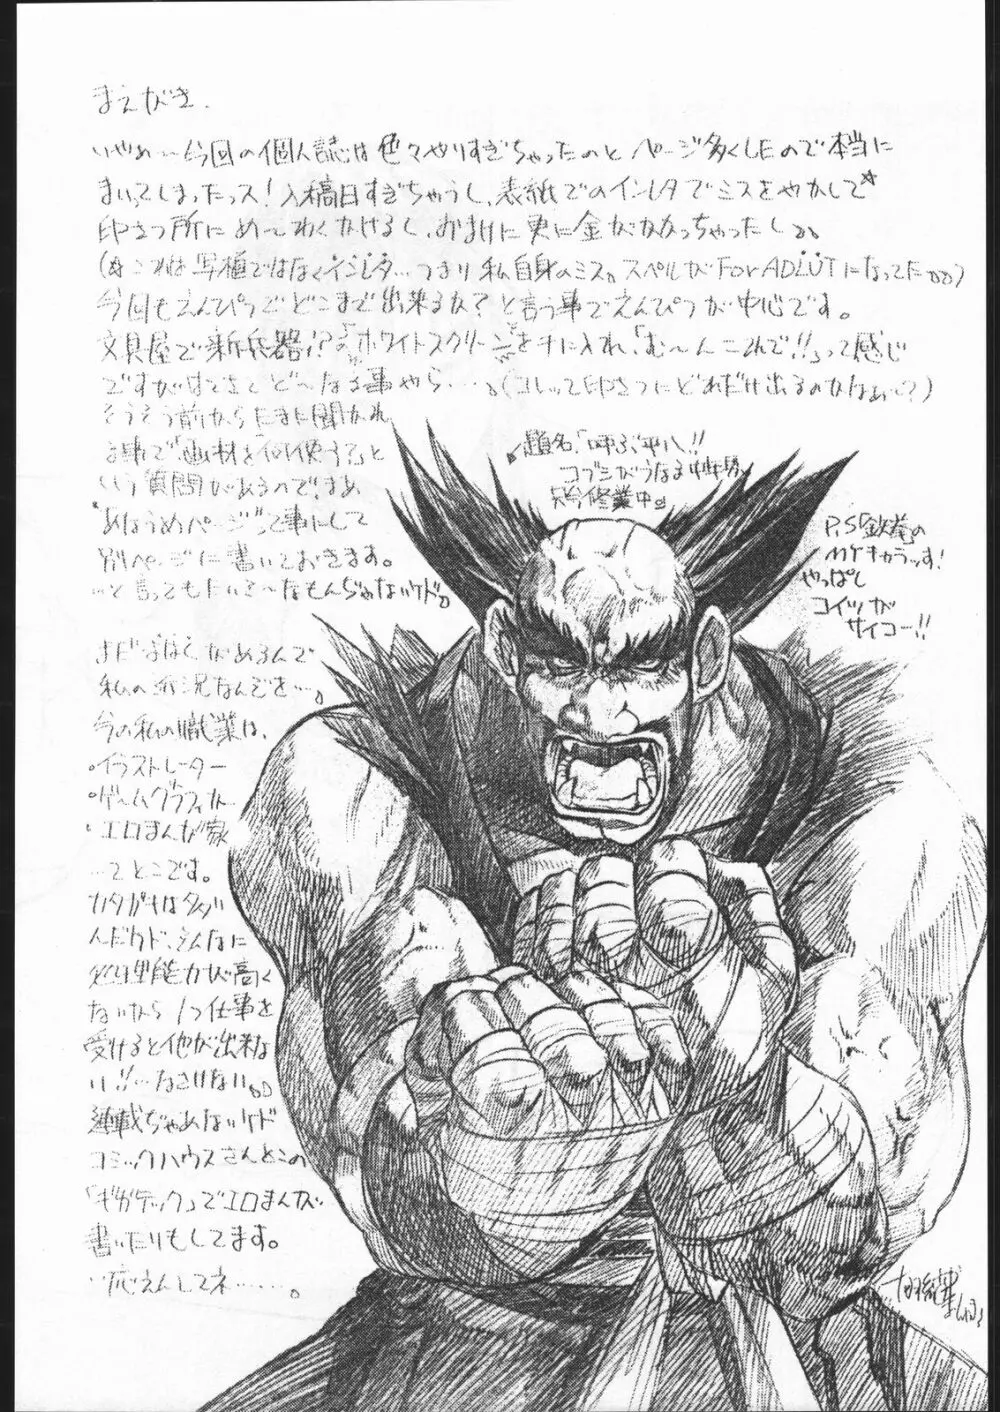 まえがき.
いやぁ〜今回の個人誌は色々やりすぎちゃったのとページ多くしたので本当に
まいってしまったっス!入稿日すぎちゃうし、表紙でのインレタでミスをやかして☆
印さつ所にめ〜わくかけるし、おまけに更に金がかかっちゃったしよ。
(☆これは写植ではなくインレタ…つまり私自身のミス。スペルがFor ADLUTになってた。。)
今回もえんぴつでどこまで出来るか?と言う事でえんぴつが中心です。
文具屋で新兵器!?の「ホワイトスクリーン」を手に入れ、「む〜んこれで!!」って感じ
ですがはてさてど〜なる事やら……。(コレって印さつにどれだけ出るのかなぁ〜?)
そうそう前からたまに聞かれ
る事で「画材を何使う?」と
いう質問があるのでまぁ
"あほうめページ"って事にして
別ページに書いておきます。
…と言ってもたいさ〜なもんぢゃないケド。
まだよはくがあるんで
私の近況なんぞを…。
今の私の職業は、
・イラストレーター
・ゲームグラフィッカー
・エロまんが家
…てとこです。
カタガキは多い
んだケド、そんなに
処理能力が高く
ないから1つ仕事を
受けると他が出来な
い!!…なさけない。。
連載ぢゃあないケド
コミックハウスさんとこの
「ギガテック」でエロまんが
書いたりもしてます。
…応えんしてネ……。
題名「叫ぶ平八!!
コブシがうなる
只今修業中。
P.S「鉄拳」の
MYキャラっす!
やっぱし
コイツが
サイコー!!